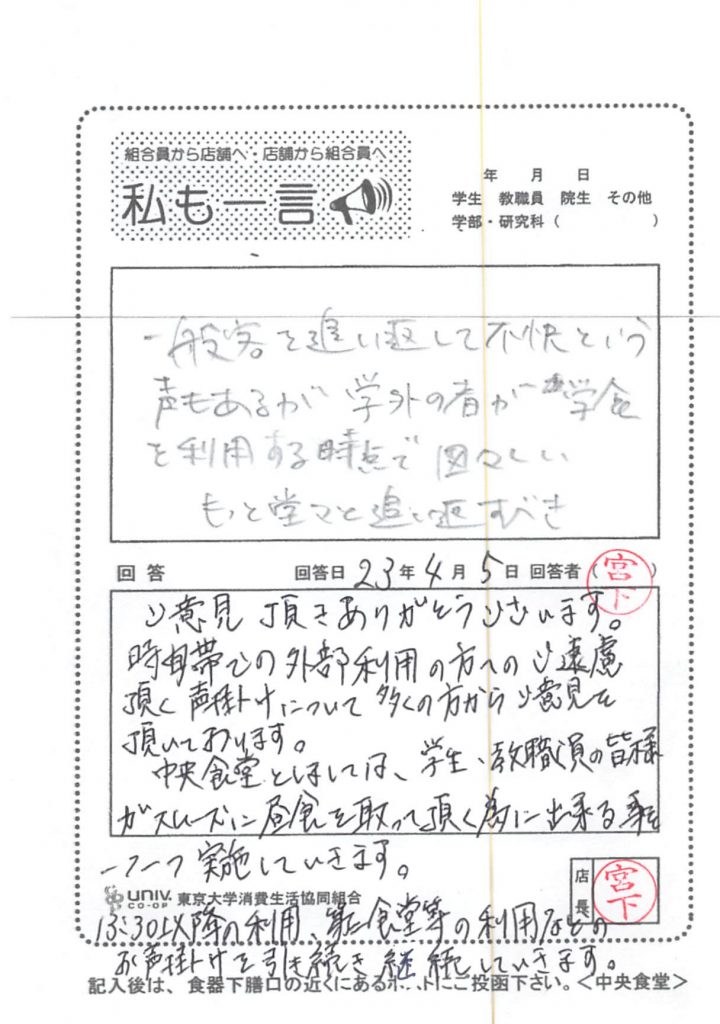 組合員から店舗へ・店舗から組合員へ
私も一言
年 月 日
学生 教職員 院生 その他
学部・研究科 ( )
一般客を追い返して不快という
声もあるが 学外の者が 学食
を利用する時点で 図々しい
もっと堂々と追い返すべき
回答 回答日 23年4月5日 回答者 (宮下)
ご意見 頂きありがとうございます。
時間帯での外部利用の方へのご遠慮
頂く声掛けについて多くの方からご意見を
頂いております。
中央食堂としましては、学生、教職員の皆様
がスムーズに昼食を取って頂く為に出来る事を
一つ一つ実施していきます。
UNIV. CO-OP 東京大学消費生活協同組合
店長 宮下
13:30以降の利用、第二食堂等の利用などの
お声掛けを引き続き継続していきます。
記入後は、食器下膳口の近くにあるポストにご投函下さい。<中央食堂>